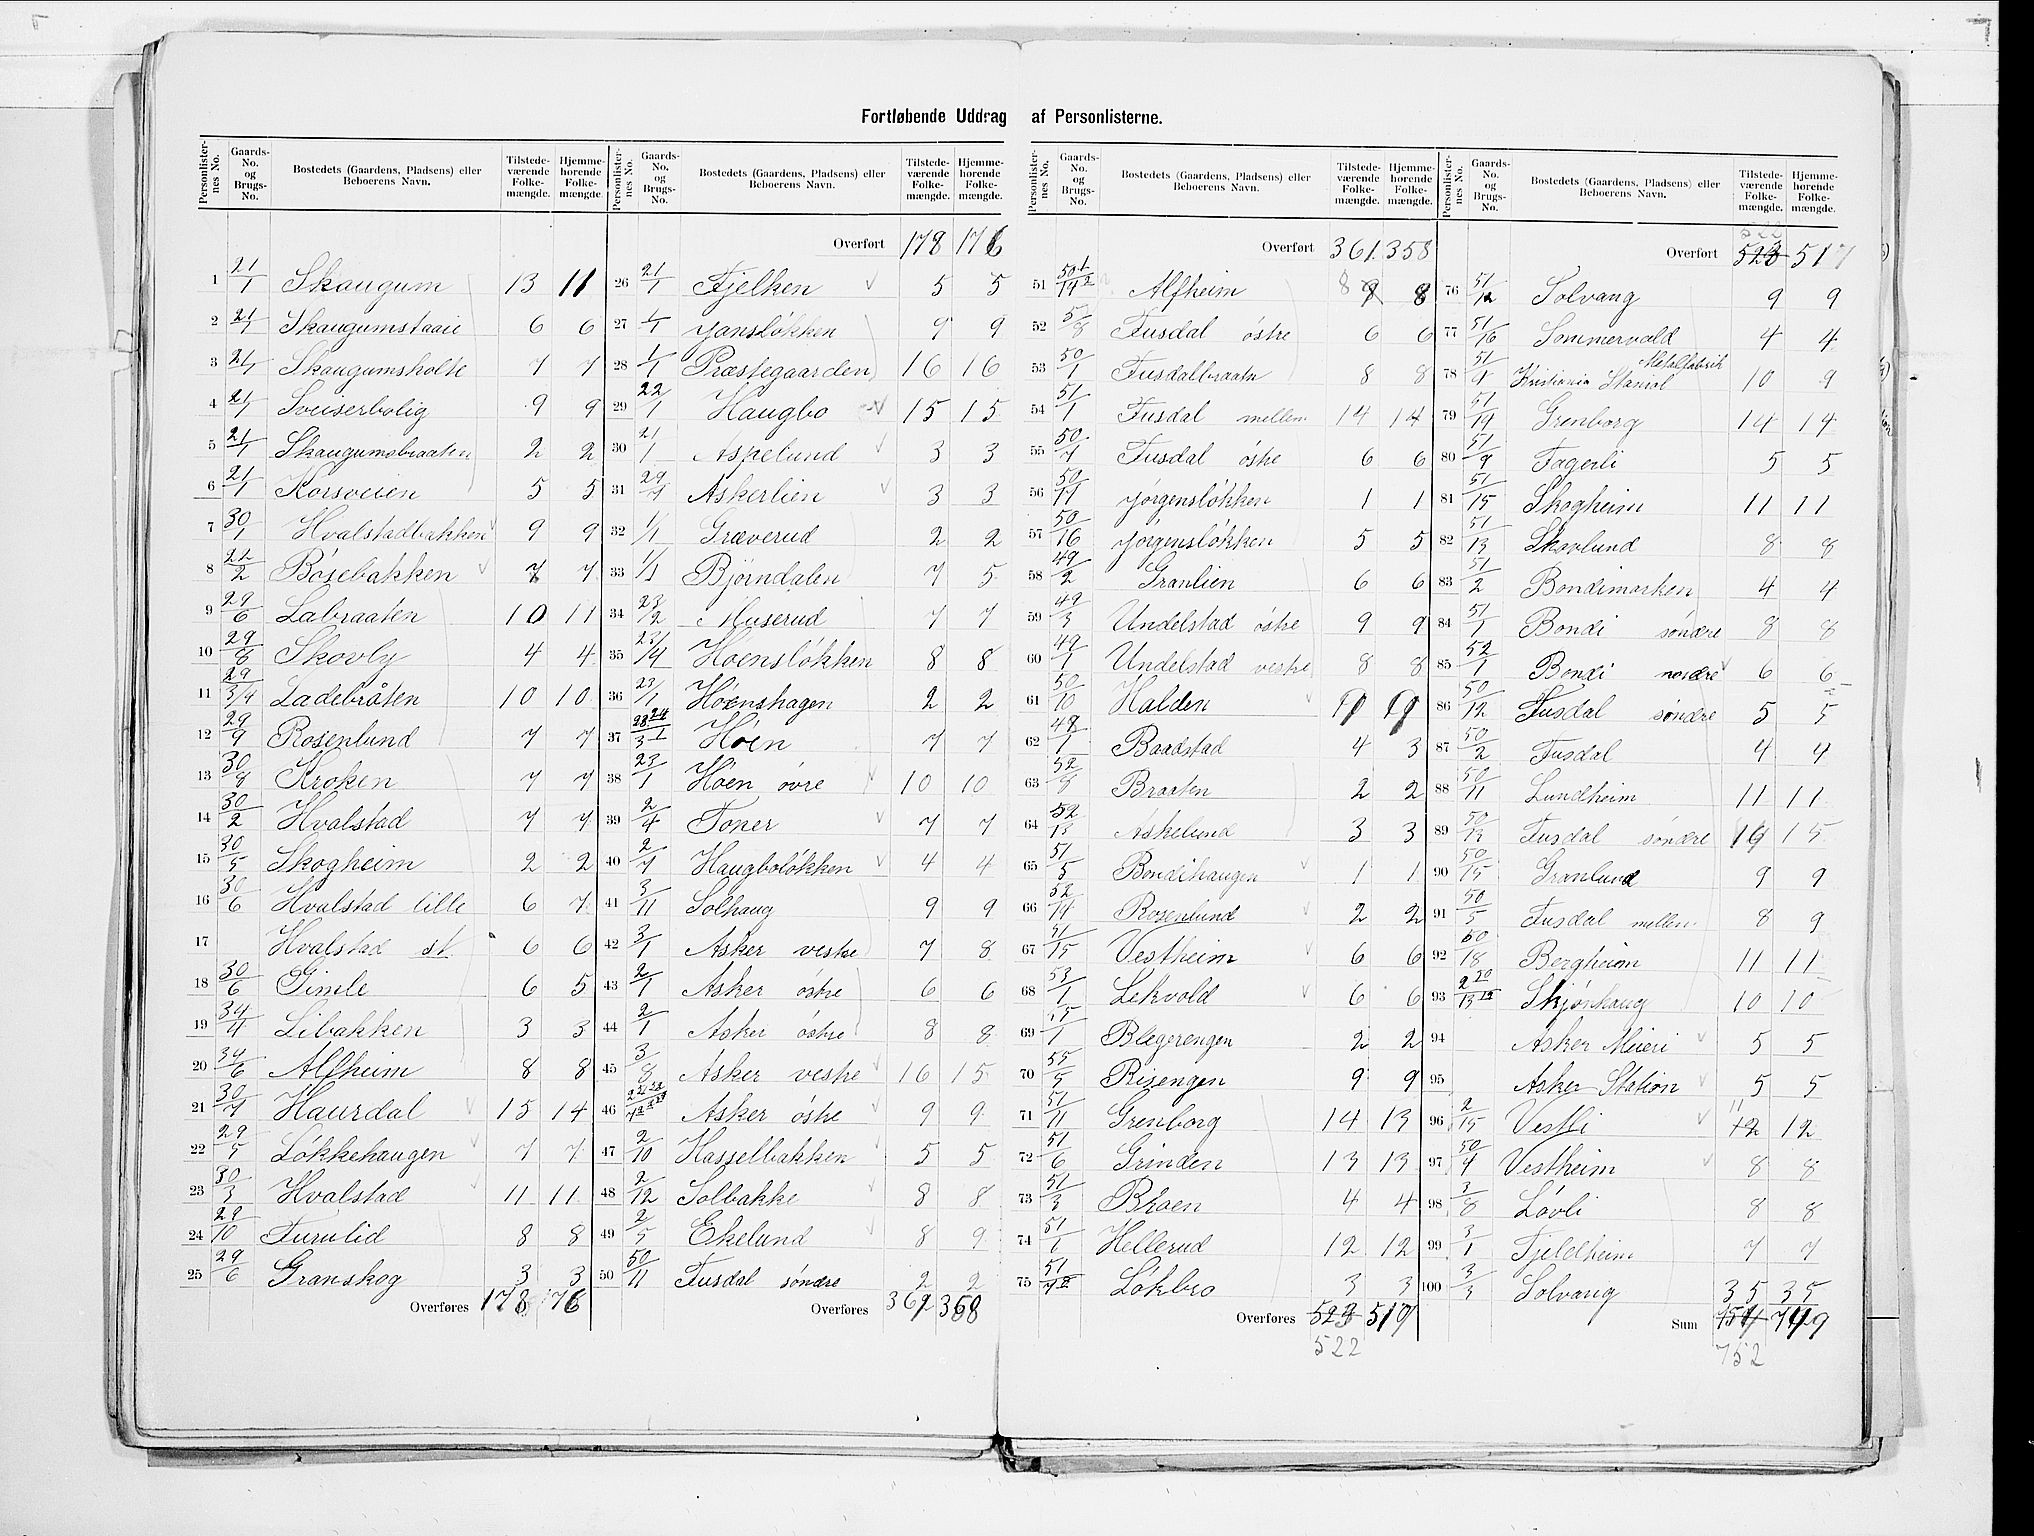 Fortløbende Uddrag af Personlisterne.
Personlisternes No. Gaards-No. og Brugs-No. Bostedets (Gaardens, Pladsen) eller Beboerens Navn. Tilstedeværende Folkemængde. Hjemmehørende Folkemængde.
1 21/1 Skaugum 13 11
2 21/1 Skaugumstaaie 6 6
3 21/1 Skaugumsholte 7 7
4 21/1 Sveiserbolig 9 9
5 21/1 Skaugumsbraaten 2 2
6 21/1 Korsveien 5 5
7 30/1 Hvalstadbakken 9 9
8 22/2 Bósebakken 7 7
9 29/6 Labraaten 10 11
10 29/8 Skovly 4 4
11 29/3/4 Ladebråten 10 10
12 29/9 Rosenlund 7 7
13 30/8 Kroken 7 7
14 30/2 Hvalstad 7 7
15 30/5 Skogheim 2 2
16 30/6 Hvalstad lille 6 7
17 Hvalstad st. 6 6
18 30/6 Gimle 6 5
19 34/4 Libakken 3 3
20 34/6 Alfheim 8 8
21 30/7 Haurdal 15 14
22 29/5 Lókkehaugen 7 7
23 30/3 Hvalstad 11 11
24 29/10 Furulid 8 8
25 29/6 Granskog 3 3
Overføres 178 176
Personlisternes No. Gaards-No. og Brugs-No. Bostedets (Gaardens, Pladsen) eller Beboerens Navn. Tilstedeværende Folkemængde. Hjemmehørende Folkemængde.
Overført 178 176
26 21/1 Fjelken 5 5
27 1/1 Janslókken 9 9
28 1/1 Præstegaarden 16 16
29 22/1 Haugbo 15 15
30 21/1 Askelund 3 3
31 29/7 Askerlien 3 3
32 1/1 Græverud 2 2
33 1/1 Bjórndalen 7 5
34 23/2 Muserud 7 7
35 23/4 Hoenslókken 8 8
36 23/1 Hóenshagen 2 2
37 28/3 24/1 Hóen 7 7
38 23/1 Hóen óvre 10 10
39 2/4 Foner 7 7
40 2/7 Haugbolókken 4 4
41 3/11 Solhaug 9 9
42 3/1 Asker vestre 7 8
43 2/1 Asker óstre 6 6
44 2/1 Asker óstre 8 8
45 3/8 Asker vestre 16 15
46 Asker óstre 9 9
47 2/10 Hasselbakken 5 5
48 2/12 Solbakke 8 8
49 2/5 Ekelund 8 9
50 50/11 Fusdal sóndre 2 2
Overføres 361 358
Personlisternes No. Gaards-No. og Brugs-No. Bostedets (Gaardens, Pladsen) eller Beboerens Navn. Tilstedeværende Folkemængde. Hjemmehørende Folkemængde.
Overført 361 358
51 50/14 1/2 Alfheim 8 8
52 5/8 Fusdal óstre 6 6
53 50/1 Fusdalbraatn 8 8
54 51/1 Fusdal mellem 14 14
55 50/7 Fusdal óstre 6 6
56 50/17 Jórgenslókken 1 1
57 50/16 Jórgenslókken 5 5
58 49/2 Granlien 6 6
59 49/3 Undelstad óstre 9 9
60 49/1 Undelstad vestre 8 8
61 50/10 Halden 9 9
62 49/1 Baadstad 4 3
63 52/8 Braaten 2 2
64 52/13 Askelund 3 3
65 51/5 Bondihaugen 1 1
66 52/14 Rosenlund 2 2
67 51/15 Vestheim 6 6
68 53/1 Lekvold 6 6
69 55/1 Blegerengen 2 2
70 55/5 Risengen 9 9
71 51/11 Grenborg 14 13
72 51/6 Grinden 13 13
73 51/3 Broen 4 4
74 51/1 Hellerud 12 12
75 51/18 Lókbro 3 3
Overføres 523 517
522
Personlisternes No. Gaards-No. og Brugs-No. Bostedets (Gaardens, Pladsen) eller Beboerens Navn. Tilstedeværende Folkemængde. Hjemmehørende Folkemængde.
522
Overført 523 517
76 51/12 Solvang 9 9
77 51/16 Sommervold 4 4
78 51/9 Kristiania Staniol Metalfabrik 10 9
79 51/14 Grenborg 14 14
80 51/9 Fagerli 5 5
81 51/15 Skogheim 11 11
82 51/13 Skovlund 8 8
83 51/2 Bondimarken 4 4
84 51/1 Bondi sóndre 8 8
85 52/1 Bondi nordre 6 6
86 50/12 Fusdal sóndre 5 5
87 50/2 Fusdal 4 4
88 50/11 Lundheim 11 11
89 50/13 Fusdal sóndre 19 15
90 50/15 Granlund 9 9
91 50/5 Fusdal mellem 8 9
92 50/18 Bergheim 11 11
93 2/13 20/12 Skjónhaug 10 10
94 Asker Meieri 5 5
95 Asker Station 5 5
96 2/15 Vestli 11 12 12
97 50/4 Vestheim 8 8
98 3/8 Lóvli 8 8
99 3/1 Fjeldheim 7 7
100 3/3 Solvang 35 35
Sum 754 749
752